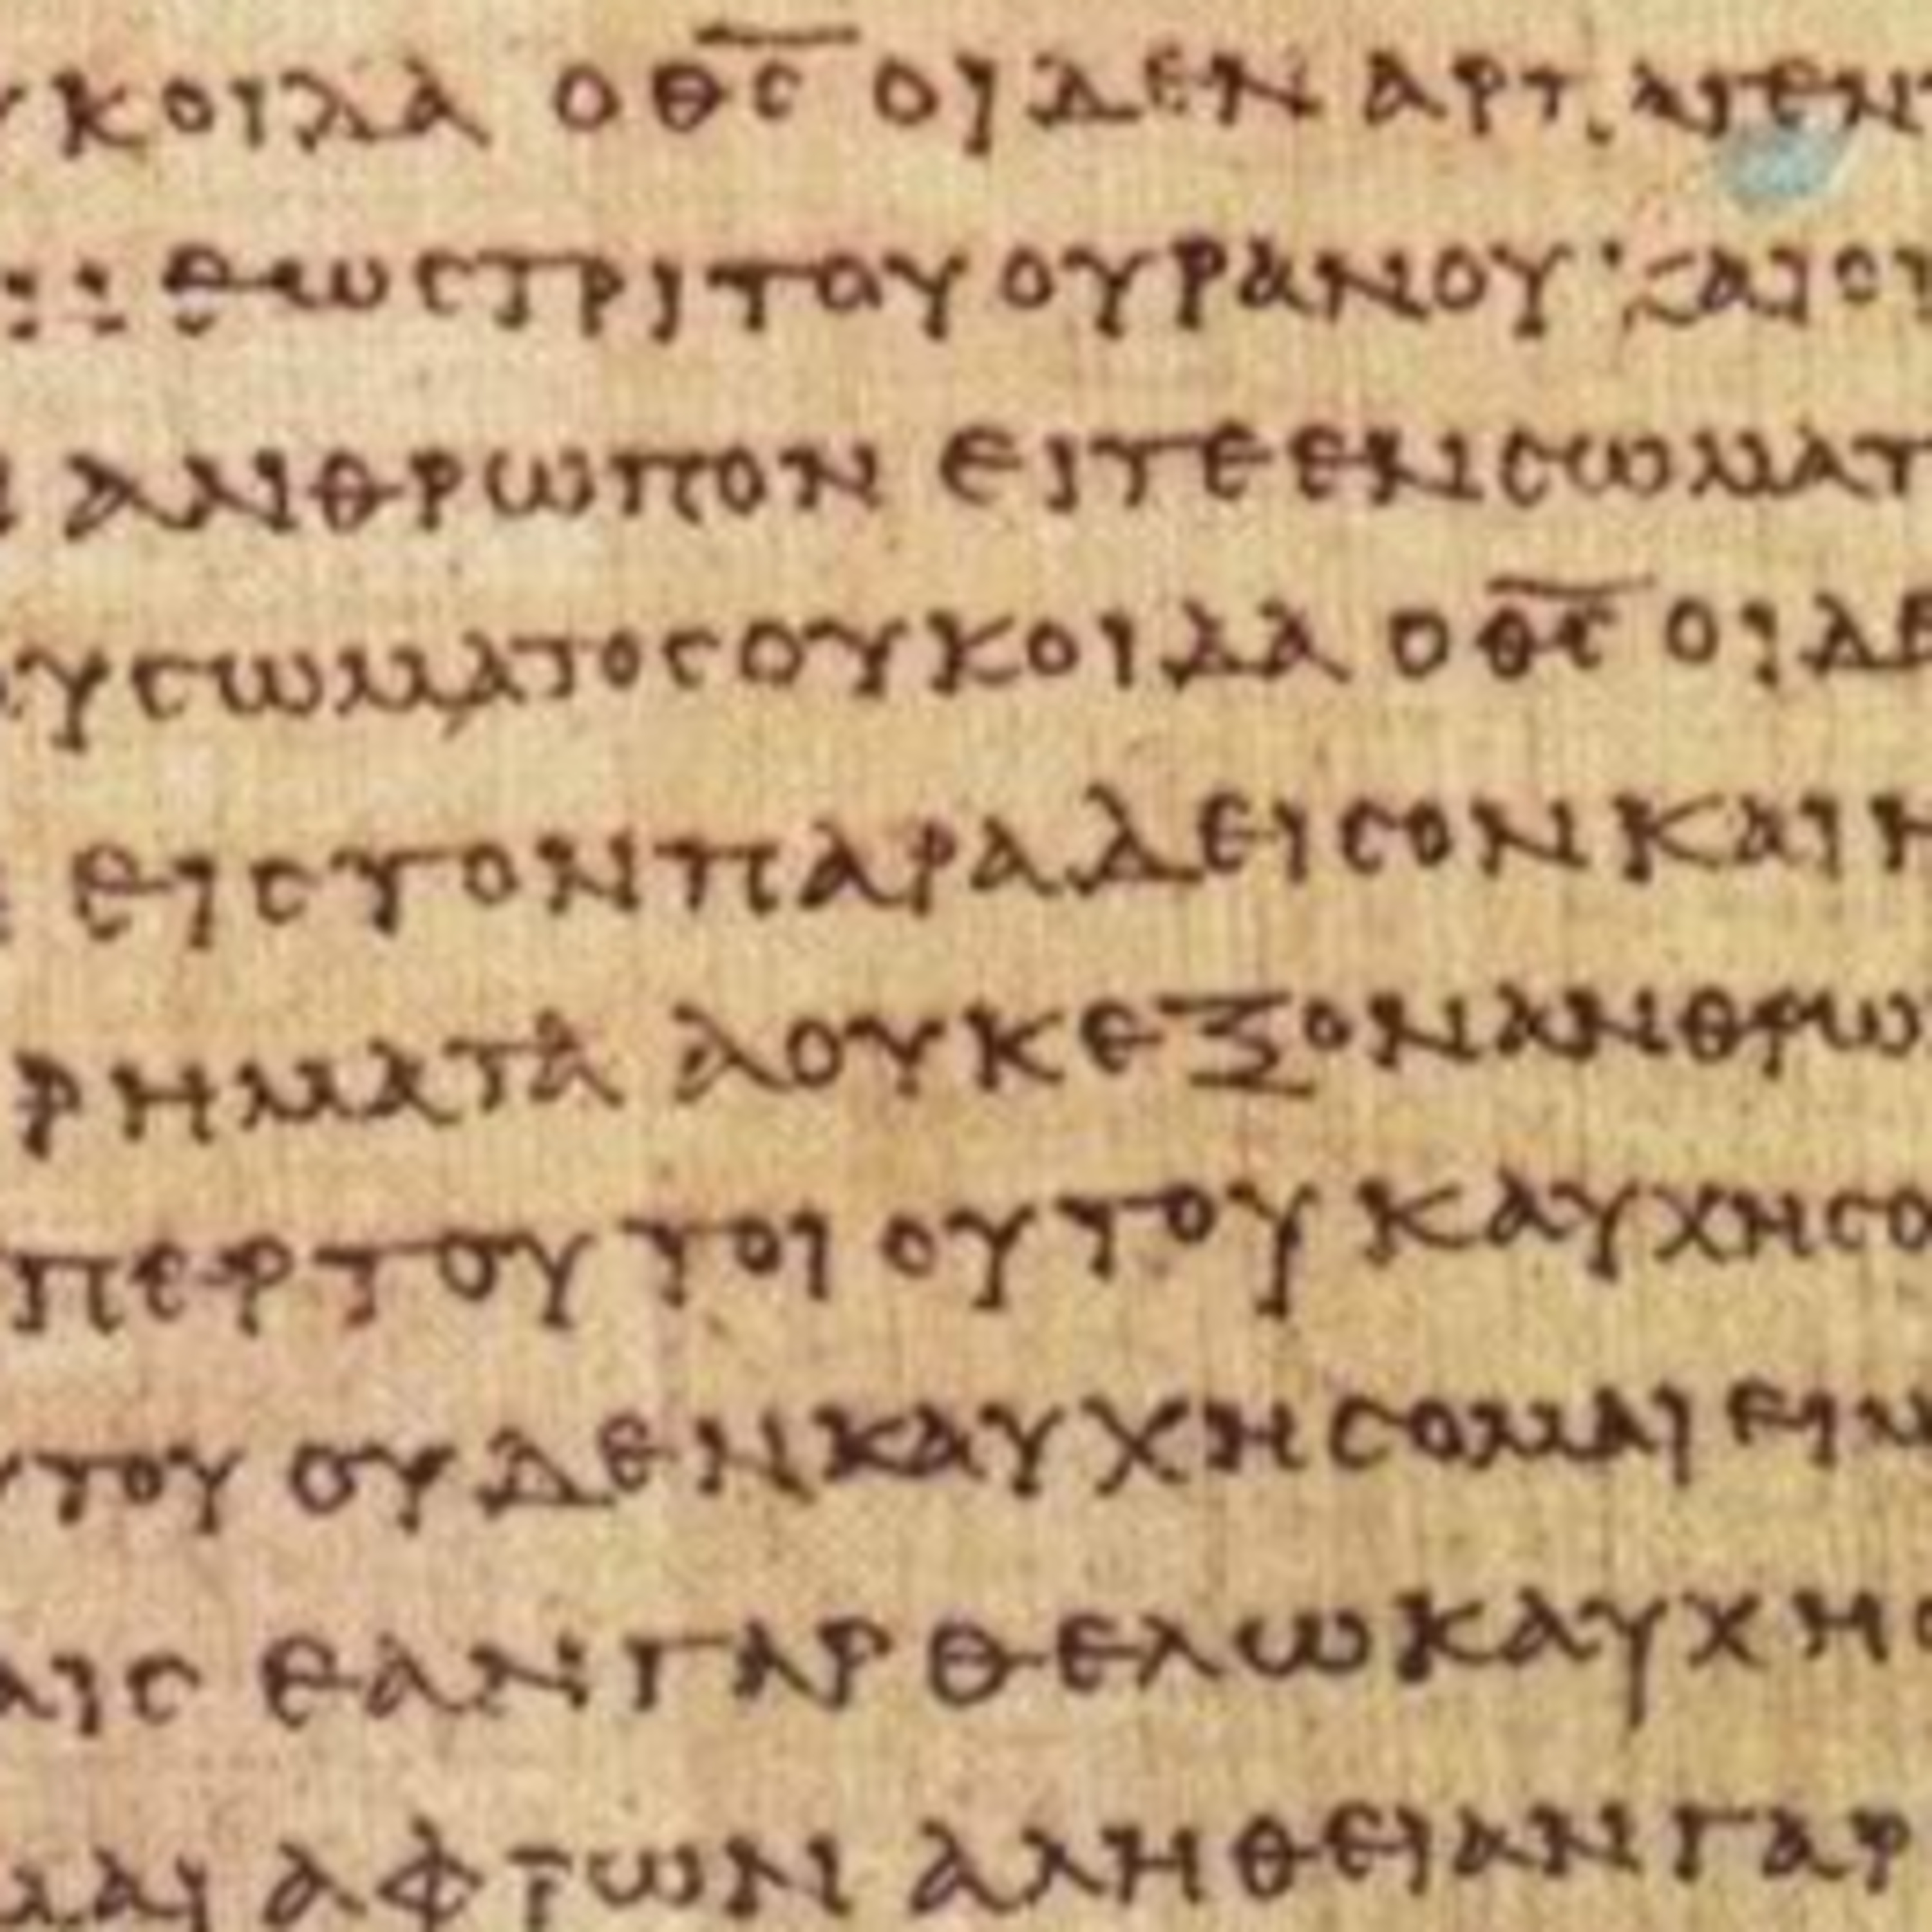 ΥΚΟΙΔΑ Ο Θ̅Ϲ̅ ΟΙΔΕΝ ΑΡΠ
ΕΩϹΤΡΙΤΟΥ ΟΥΡΑΝΟΥ· ΚΑΙΟΙ
ΑΝΘΡΩΠΟΝ ΕΙΤΕΕΝϹΩΜΑΤ
ΟΥϹΩΜΑΤΟϹΟΥΚΟΙΔΑ Ο Θ̅Ϲ̅ ΟΙΔΕ
ΕΙϹΤΟΝΠΑΡΑΔΕΙϹΟΝΚΑΙΗ
ΡΗΜΑΤΑ ΑΟΥΚΕΞΟΝΑΝΘΡΩ
ΠΕΡΤΟΥ ΤΟΙΟΥΤΟΥ ΚΑΥΧΗϹΟ
ΥΤΟΥ ΟΥΔΕΝΚΑΥΧΗϹΟΜΑΙ ΕΙΜ
ΑΙϹ ΕΑΝΓΑΡ ΘΕΛΩΚΑΥΧΗϹ
ΜΑΙ ΑΦΡΩΝ ΑΛΗΘΕΙΑΝΓΑΡ